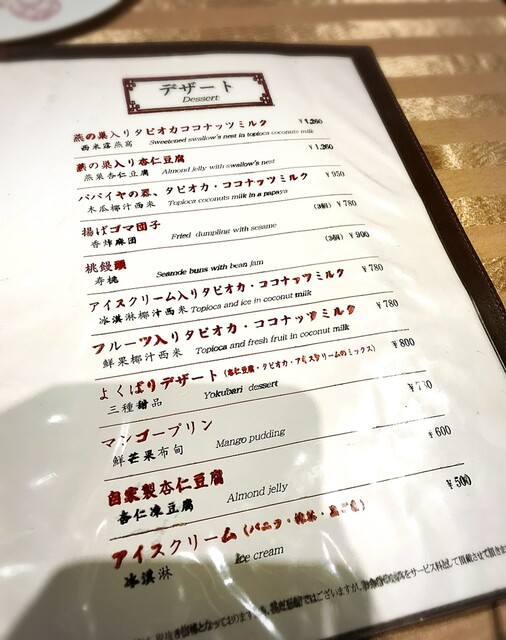 デザート
Dessert
燕の巣入りタピオカココナッツミルク ¥1,260
西米露燕窩 Sweetened swallow's nest in topioca coconuts milk
燕の巣入り杏仁豆腐 ¥1,260
燕巣杏仁豆腐 Almond jelly with swallow's nest
パパイヤの器、タピオカ・ココナッツミルク ¥950
木瓜椰汁西米 Topioca coconuts milk in a papaya
揚げゴマ団子 (3個) ¥780
香炸麻団 Fried dumpling with sesame
桃饅頭 (3個) ¥900
寿桃 Seamde buns with bean jam
アイスクリーム入りタピオカ・ココナッツミルク ¥780
冰淇淋椰汁西米 Topioca and ice in coconut milk
フルーツ入りタピオカ・ココナッツミルク ¥780
鮮果椰汁西米 Topioca and fresh fruit in coconut milk
よくばりデザート (杏仁豆腐・タピオカ・アイスクリームのミックス) ¥800
三種甜品 Yokubari dessert
マンゴープリン ¥700
鮮芒果布甸 Mango pudding
自家製杏仁豆腐 ¥600
杏仁凍豆腐 Almond jelly
アイスクリーム (バニラ・抹茶・黒ごま) ¥500
冰淇淋 Ice cream
税抜き価格となっております。ではございますが、をサービス料として頂戴させて頂きます